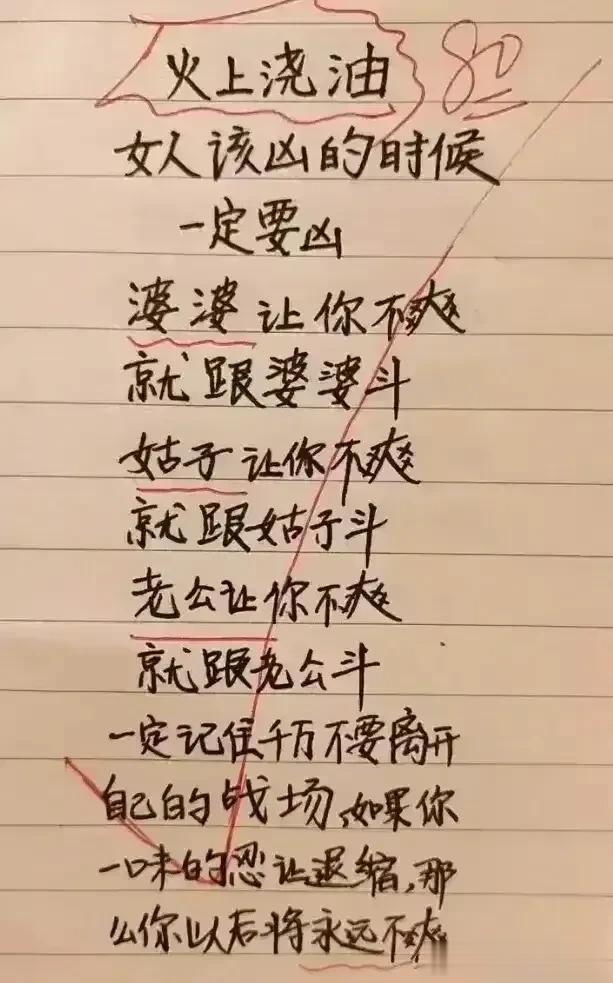 火上浇油
80
女人该凶的时候
一定要凶
婆婆让你不爽
就跟婆婆斗
姑子让你不爽
就跟姑子斗
老公让你不爽
就跟老公斗
一定记住千万不要离开
自己的战场,如果你
一味的忍让退缩,那
么你以后将永远不爽